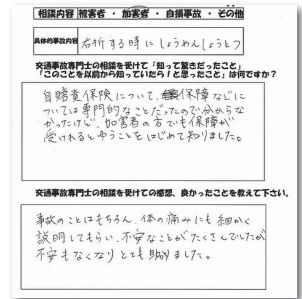 相談内容 被害者 ・ 加害者 ・ 自損事故 ・ その他
具体的事故内容 右折する時にしょうめんしょうとつ
交通事故専門士の相談を受けて「知って驚きだったこと」
「このことを以前から知っていたら!と思ったこと」は何ですか?
自賠責保険について、保障などに
ついては専門的なことだったので分からな
かったけど、加害者の方でも保障が
受けれるとゆうことをはじめて知りました。
交通事故専門士の相談を受けての感想、良かったことを教えて下さい。
事故のことはもちろん、体の痛みにも細かく
説明してもらい、不安なことがたくさんでしたが
不安もなくなりとても助かりました。